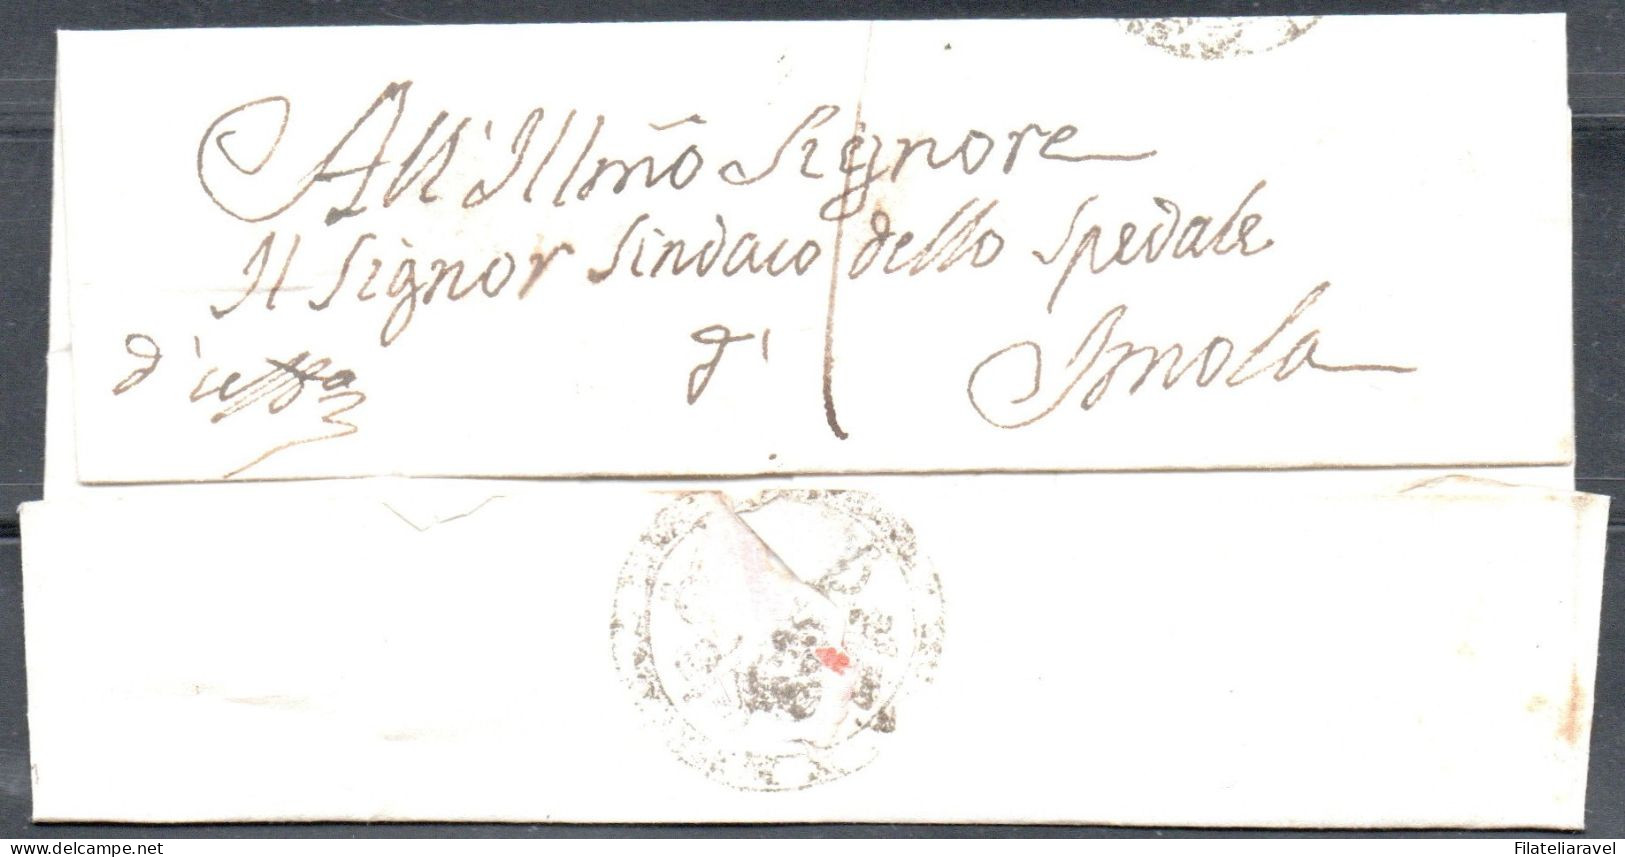 All' Illmõ Signore
Il Signor Sindaco dello Spedale
d' Imola
delcampe.net
Filateliaravel